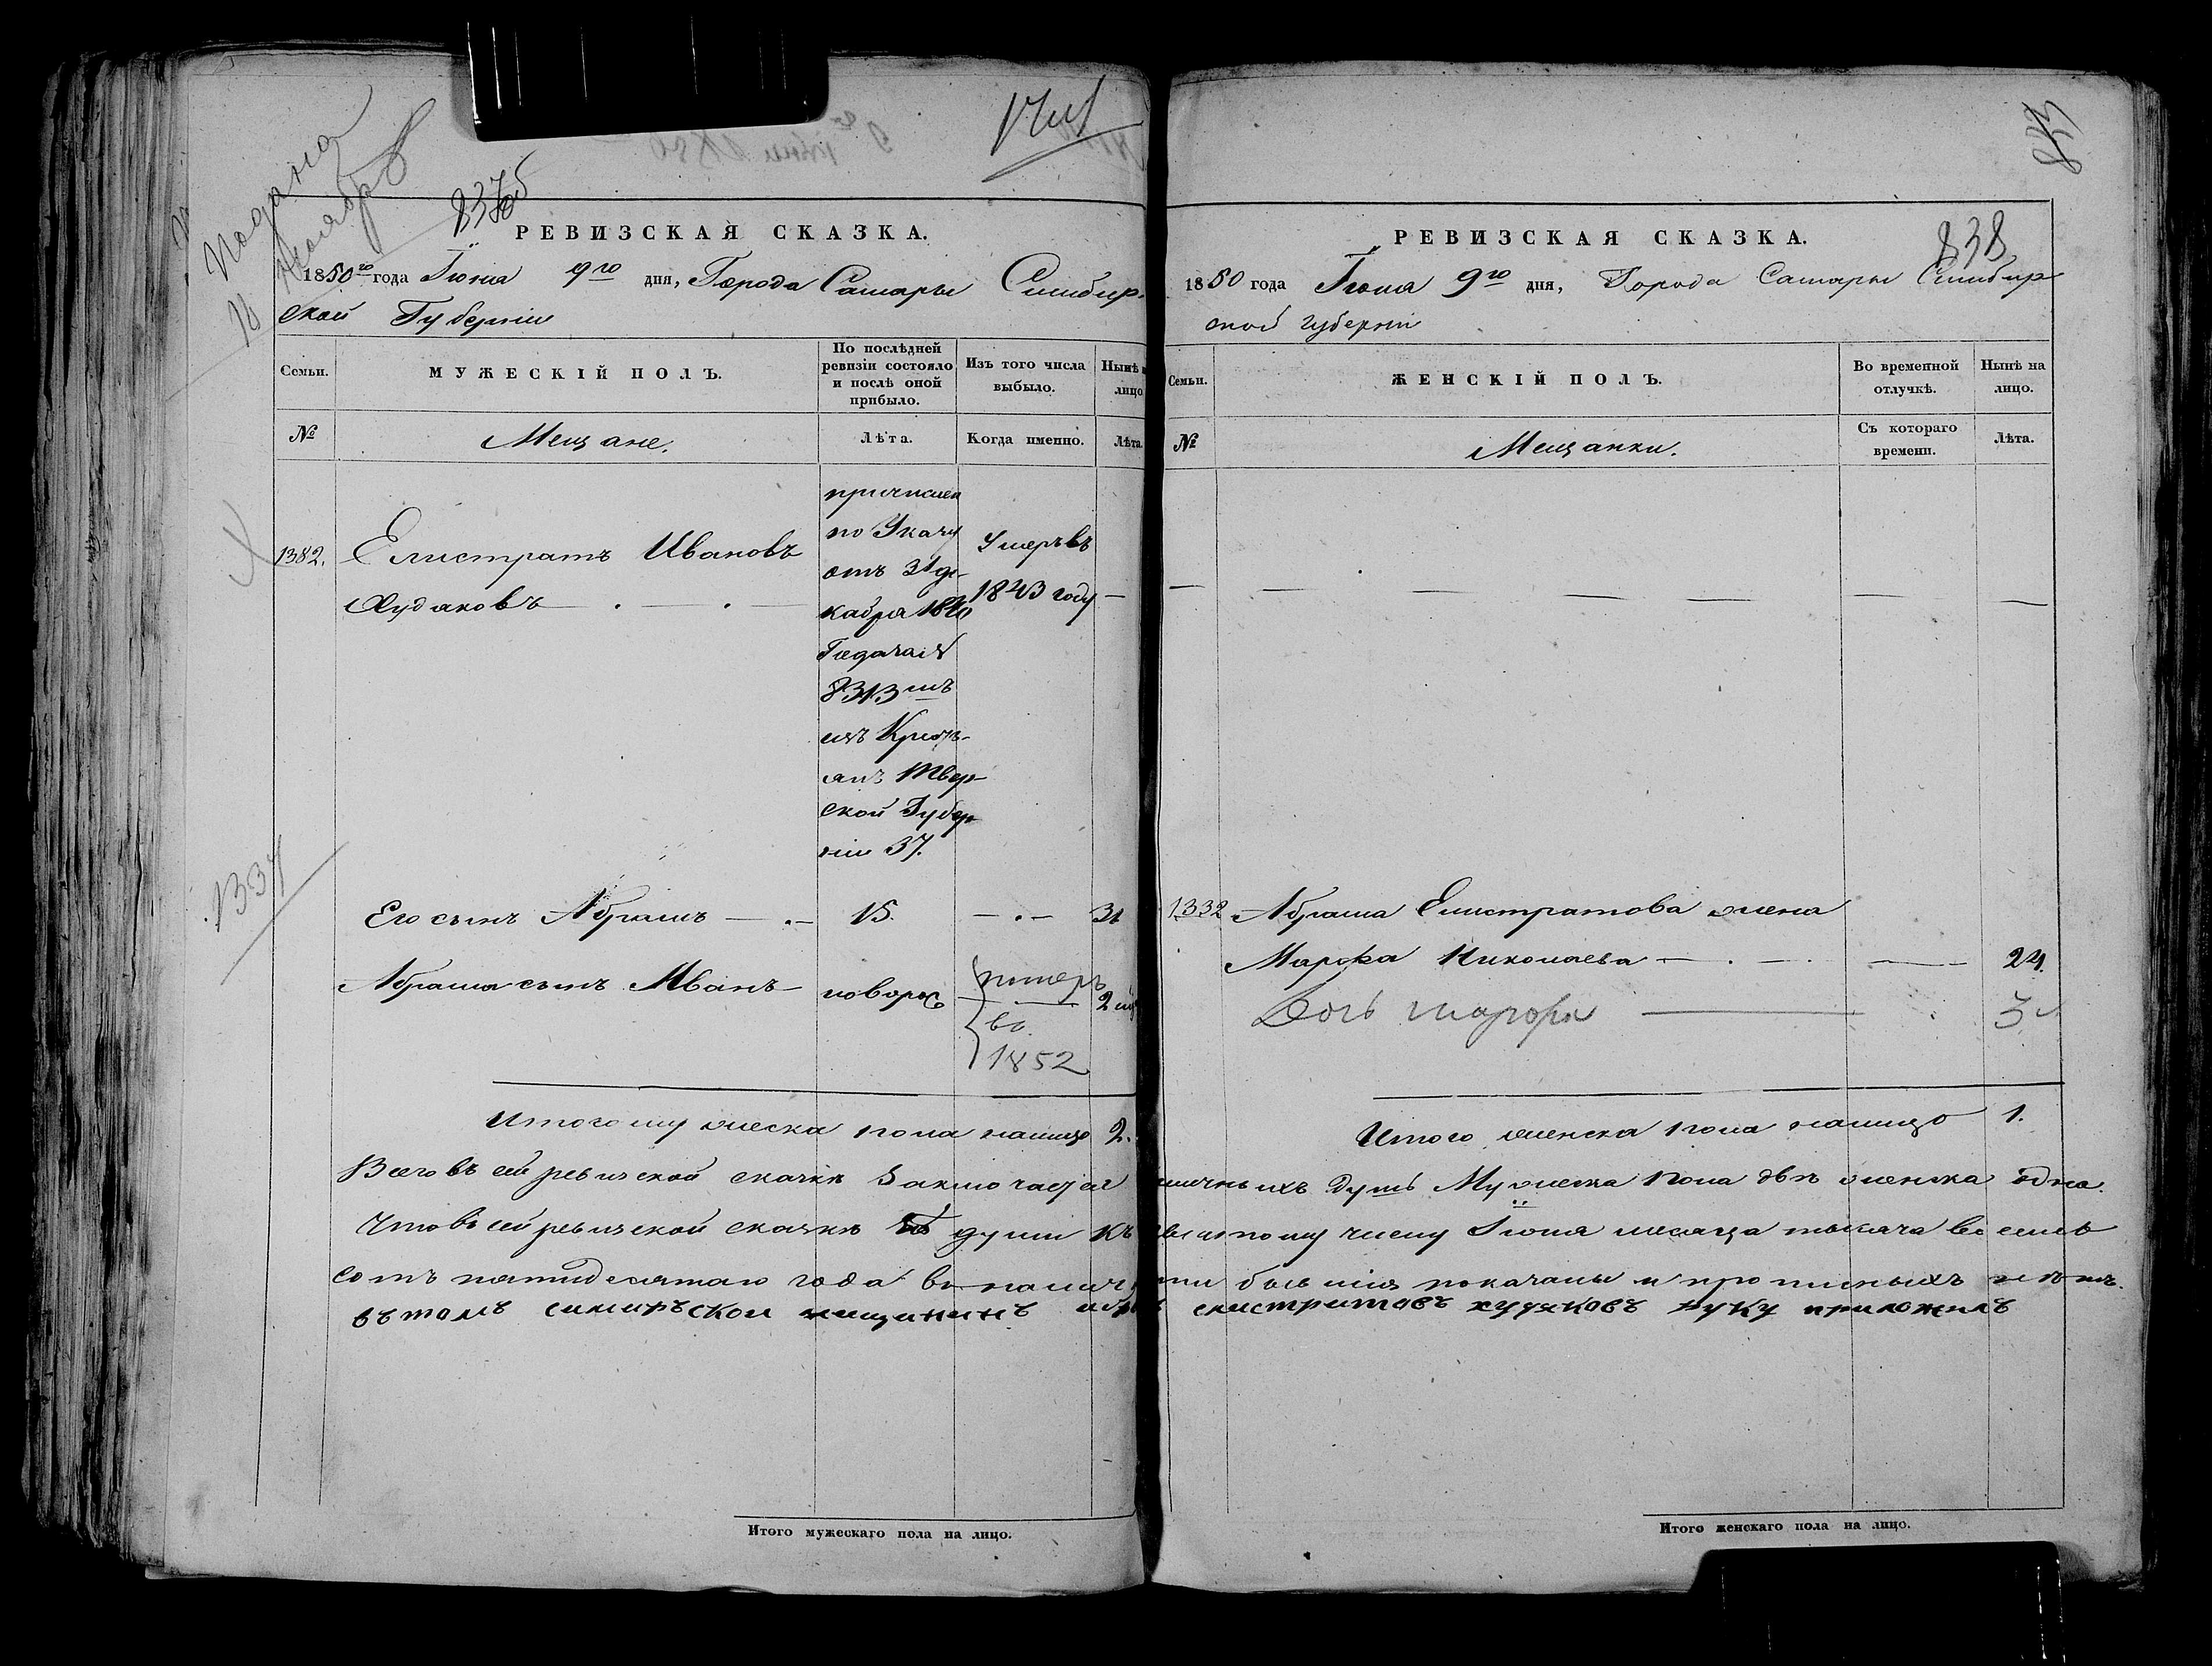 Подана
10 ноября
837об
РЕВИЗСКАЯ СКАЗКА.
1850го года Іюня 9го дня, Города Самары Симбир-
ской Губерніи
Семьи.
МУЖЕСКІЙ ПОЛЪ.
По послѣдней ревизіи состояло и послѣ оной прибыло.
Изъ того числа выбыло.
Нынѣ на лицо
№
Мещане.
Лѣта.
Когда именно.
Лѣта.
1382.
Елистратъ Ивановъ
Худяковъ
причислен
по Указу
отъ 31 де-
кабря 1840
Года за №
8313мъ
изъ Кресть-
янъ Твер-
ской Губер-
ніи 37.
Умеръ въ
1843 году
1334
Его сынъ Абрамъ
15.
31
Абрама сынъ Иванъ
новорож
померъ
во
1852
2
Итого мужеска пола налицо 2.
838
РЕВИЗСКАЯ СКАЗКА.
1850 года Іюня 9го дня, Города Самары Симбир
ской губерніи
Семьи.
ЖЕНСКІЙ ПОЛЪ.
Во временной отлучкѣ.
Нынѣ на лицо.
№
Мещанки.
Съ котораго времени.
Лѣта.
1332
Абрама Елистратова жена
Марфа Николаева
24.
Дочь Марфа
3
Итого женска пола налицо 1.
Всего въ сей ревизской сказкѣ заключается наличныхъ душъ Мужеска пола двѣ женска одна.
Что въ сей ревизской сказкѣ всѣ души къ девятому числу Іюня месяца тысяча восемь
сотъ пятидесятаго года въ наличности бывшія показаны и прописныхъ нетъ.
въ томъ самарской мещанинъ абрамъ елистратовъ худяковъ руку приложилъ
Итого мужескаго пола на лицо.
Итого женскаго пола на лицо.